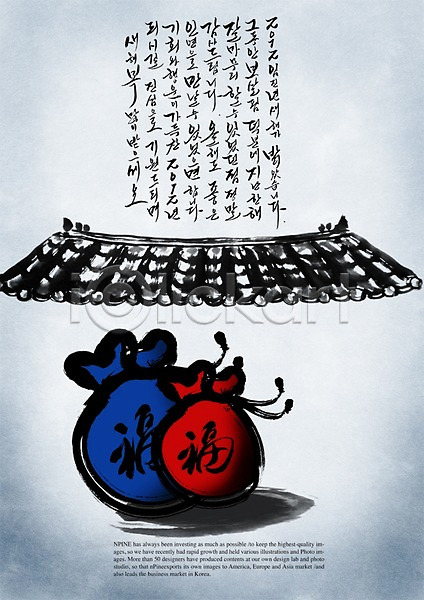 2012 임진년 새해가 밝았습니다.
그동안 보살핌 덕분에 지난 한해
잘 마무리 할 수 있었던 점 정말
감사드립니다. 올해도 좋은
인연으로 만날 수 있었으면 합니다
기회와 행운이 가득한 2012년
되시길 진심으로 기원드리며
새해 복 많이 받으세요
iclickart
福
福
NPINE has always been investing as much as possible /to keep the highest-quality im-
ages, so we have recently had rapid growth and held various illustrations and Photo im-
ages. More than 50 designers have produced contents at our own design lab and photo
studio, so that nPineexports its own images to America, Europe and Asia market /and
also leads the business market in Korea.